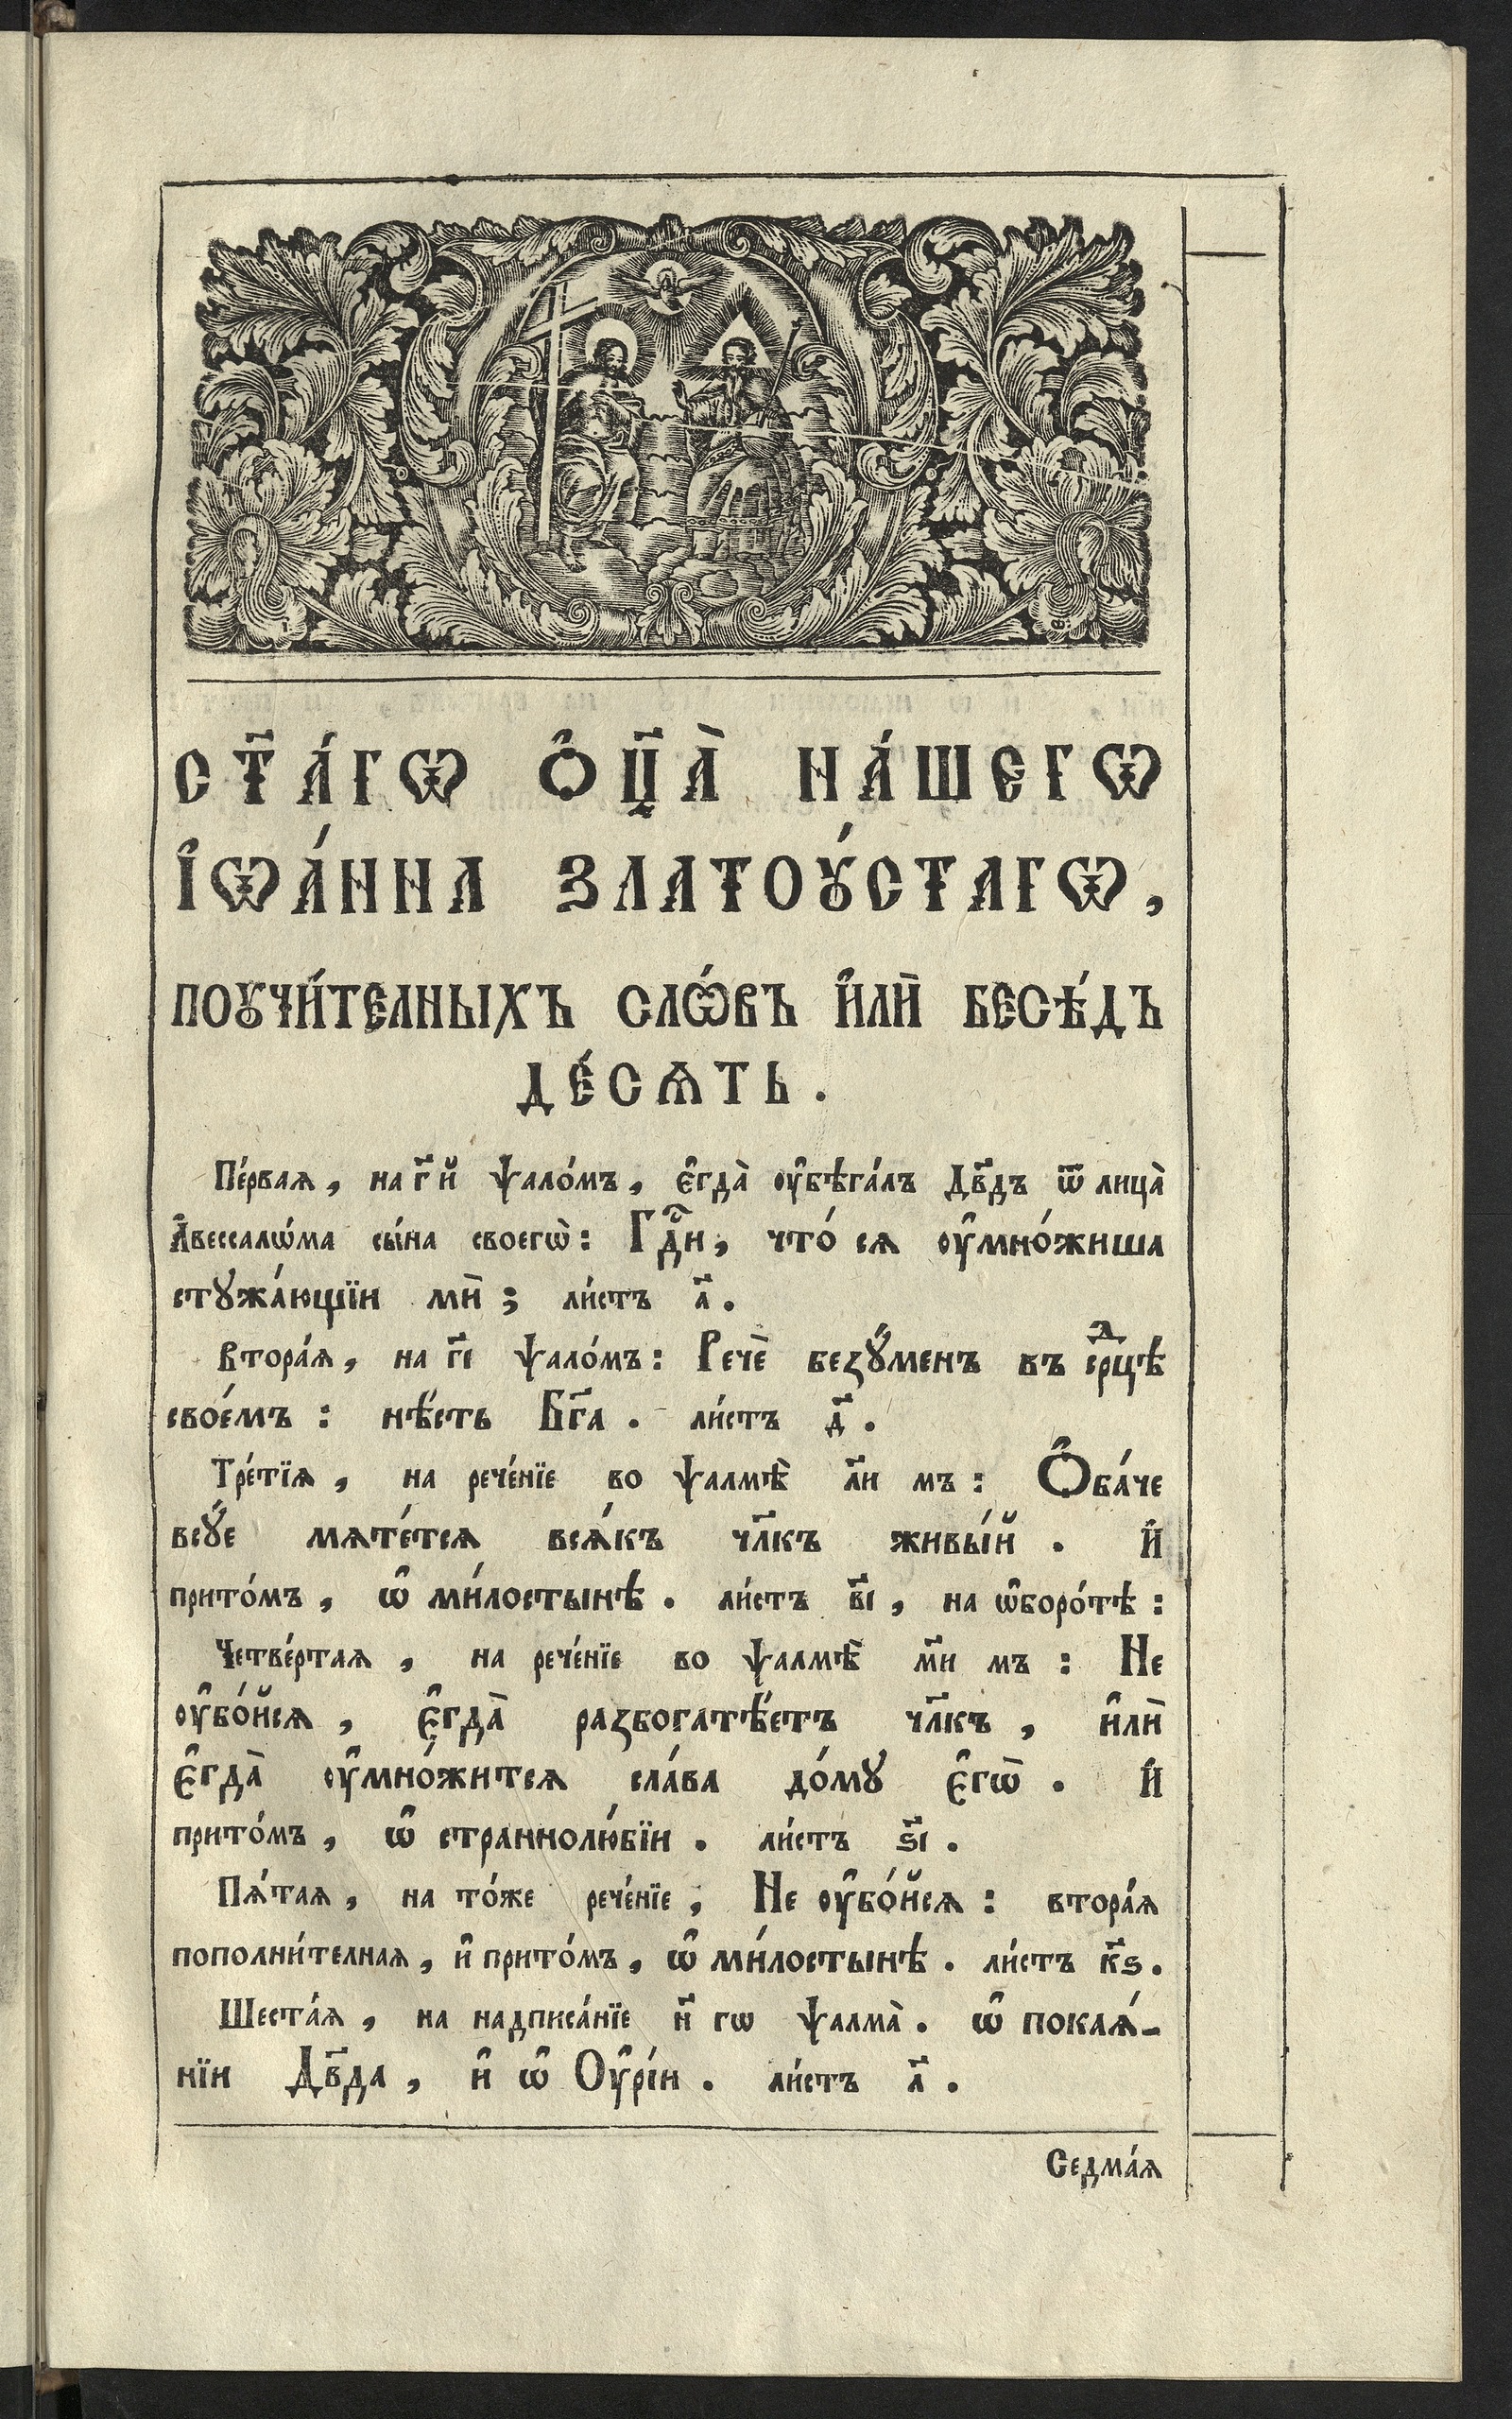 СТ҃А́ГѠ Ѻ҆Ц҃А̀ НА́ШЕГѠ
І҆ѠА́ННА ЗЛАТОꙊ́СТАГѠ,
ПОꙊЧИ́ТЕЛНЫХЪ СЛѠ́ВЪ И҆ЛЍ БЕСѢ́ДЪ
ДЕ́СѦТЬ.
Пе́рваѧ, на г҃й ѱало́мъ, є҆гда̀ ᲂу҆бѣга́лъ Дв҃дъ ѿ лица̀
А҆вессалѡ́ма сы́на своегѡ̀: Гдⷭ҇и, что́ сѧ ᲂу҆мно́жиша
стꙋжа́ющїи мѝ; ли́стъ а҃.
Втора́ѧ, на г҃і ѱало́мъ: Речѐ безꙋ́менъ въ срⷣцѣ
свое́мъ: нѣ́сть Бг҃а. ли́стъ д҃.
Тре́тїѧ, на рече́нїе во ѱалмѣ̀ л҃и мъ: Ѻ҆ба́че
всꙋ́е мѧте́тсѧ всѧ́къ чл҃къ живы́й. И҆
прито́мъ, ѡ҆ ми́лостынѣ. ли́стъ в҃і, на ѡ҆боро́тѣ:
Четве́ртаѧ, на рече́нїе во ѱалмѣ̀ м҃и мъ: Не
ᲂу҆бо́йсѧ, є҆гда̀ разбогатѣ́етъ чл҃къ, и҆лѝ
є҆гда̀ ᲂу҆мно́житсѧ сла́ва до́мꙋ є҆гѡ̀. И҆
прито́мъ, ѡ҆ страннолю́бїи. ли́стъ ѕ҃і.
Пѧ́таѧ, на то́же рече́нїе, Не ᲂу҆бо́йсѧ: втора́ѧ
пополни́телнаѧ, и҆ прито́мъ, ѡ҆ ми́лостынѣ. ли́стъ к҃ѕ.
Шеста́ѧ, на надписа́нїе н҃ гѡ ѱалма̀. ѡ҆ покаѧ́-
нїи Дв҃да, и҆ ѡ҆ Оу҆рі́и. ли́стъ л҃.
Седма́ѧ